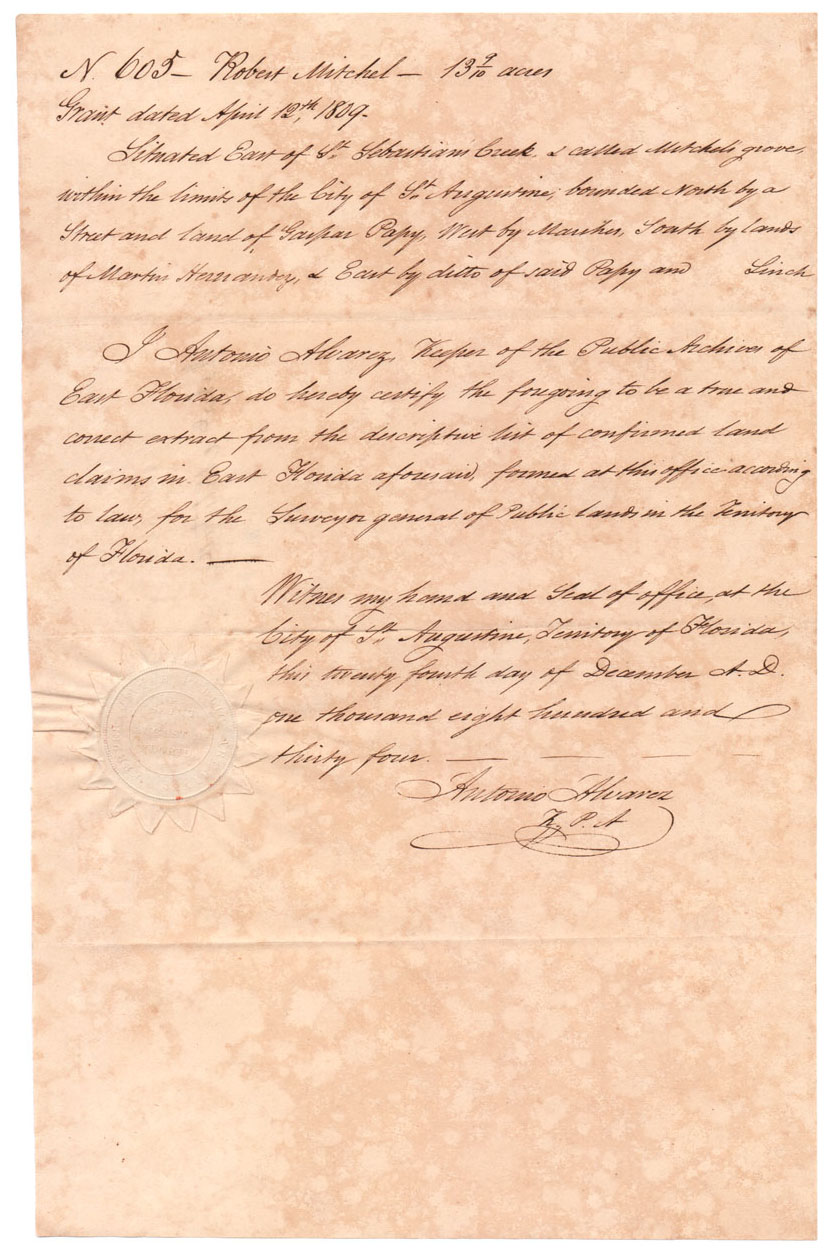 N. 605 — Robert Mitchel — 13 9/10 acres
Grant dated April 12th, 1809.
Situated East of St. Sebastians Creek, & called Mitchels grove,
within the limits of the City of St. Augustine; bounded North by a
Street and land of Gaspar Papy, West by Marshes, South by lands
of Martin Hernandez, & East by ditto of said Papy and Linch
I Antonio Alvarez, Keeper of the Public Archives of
East Florida, do hereby certify the foregoing to be a true and
correct extract from the descriptive list of confirmed land
claims in East Florida aforesaid, formed at this office according
to law, for the Surveyor general of Public lands in the Territory
of Florida. —
Witness my hand and Seal of office, at the
City of St. Augustine, Territory of Florida,
this twenty fourth day of December A.D.
one thousand eight hundred and
thirty four. — — — —
Antonio Alvarez
K. P. A